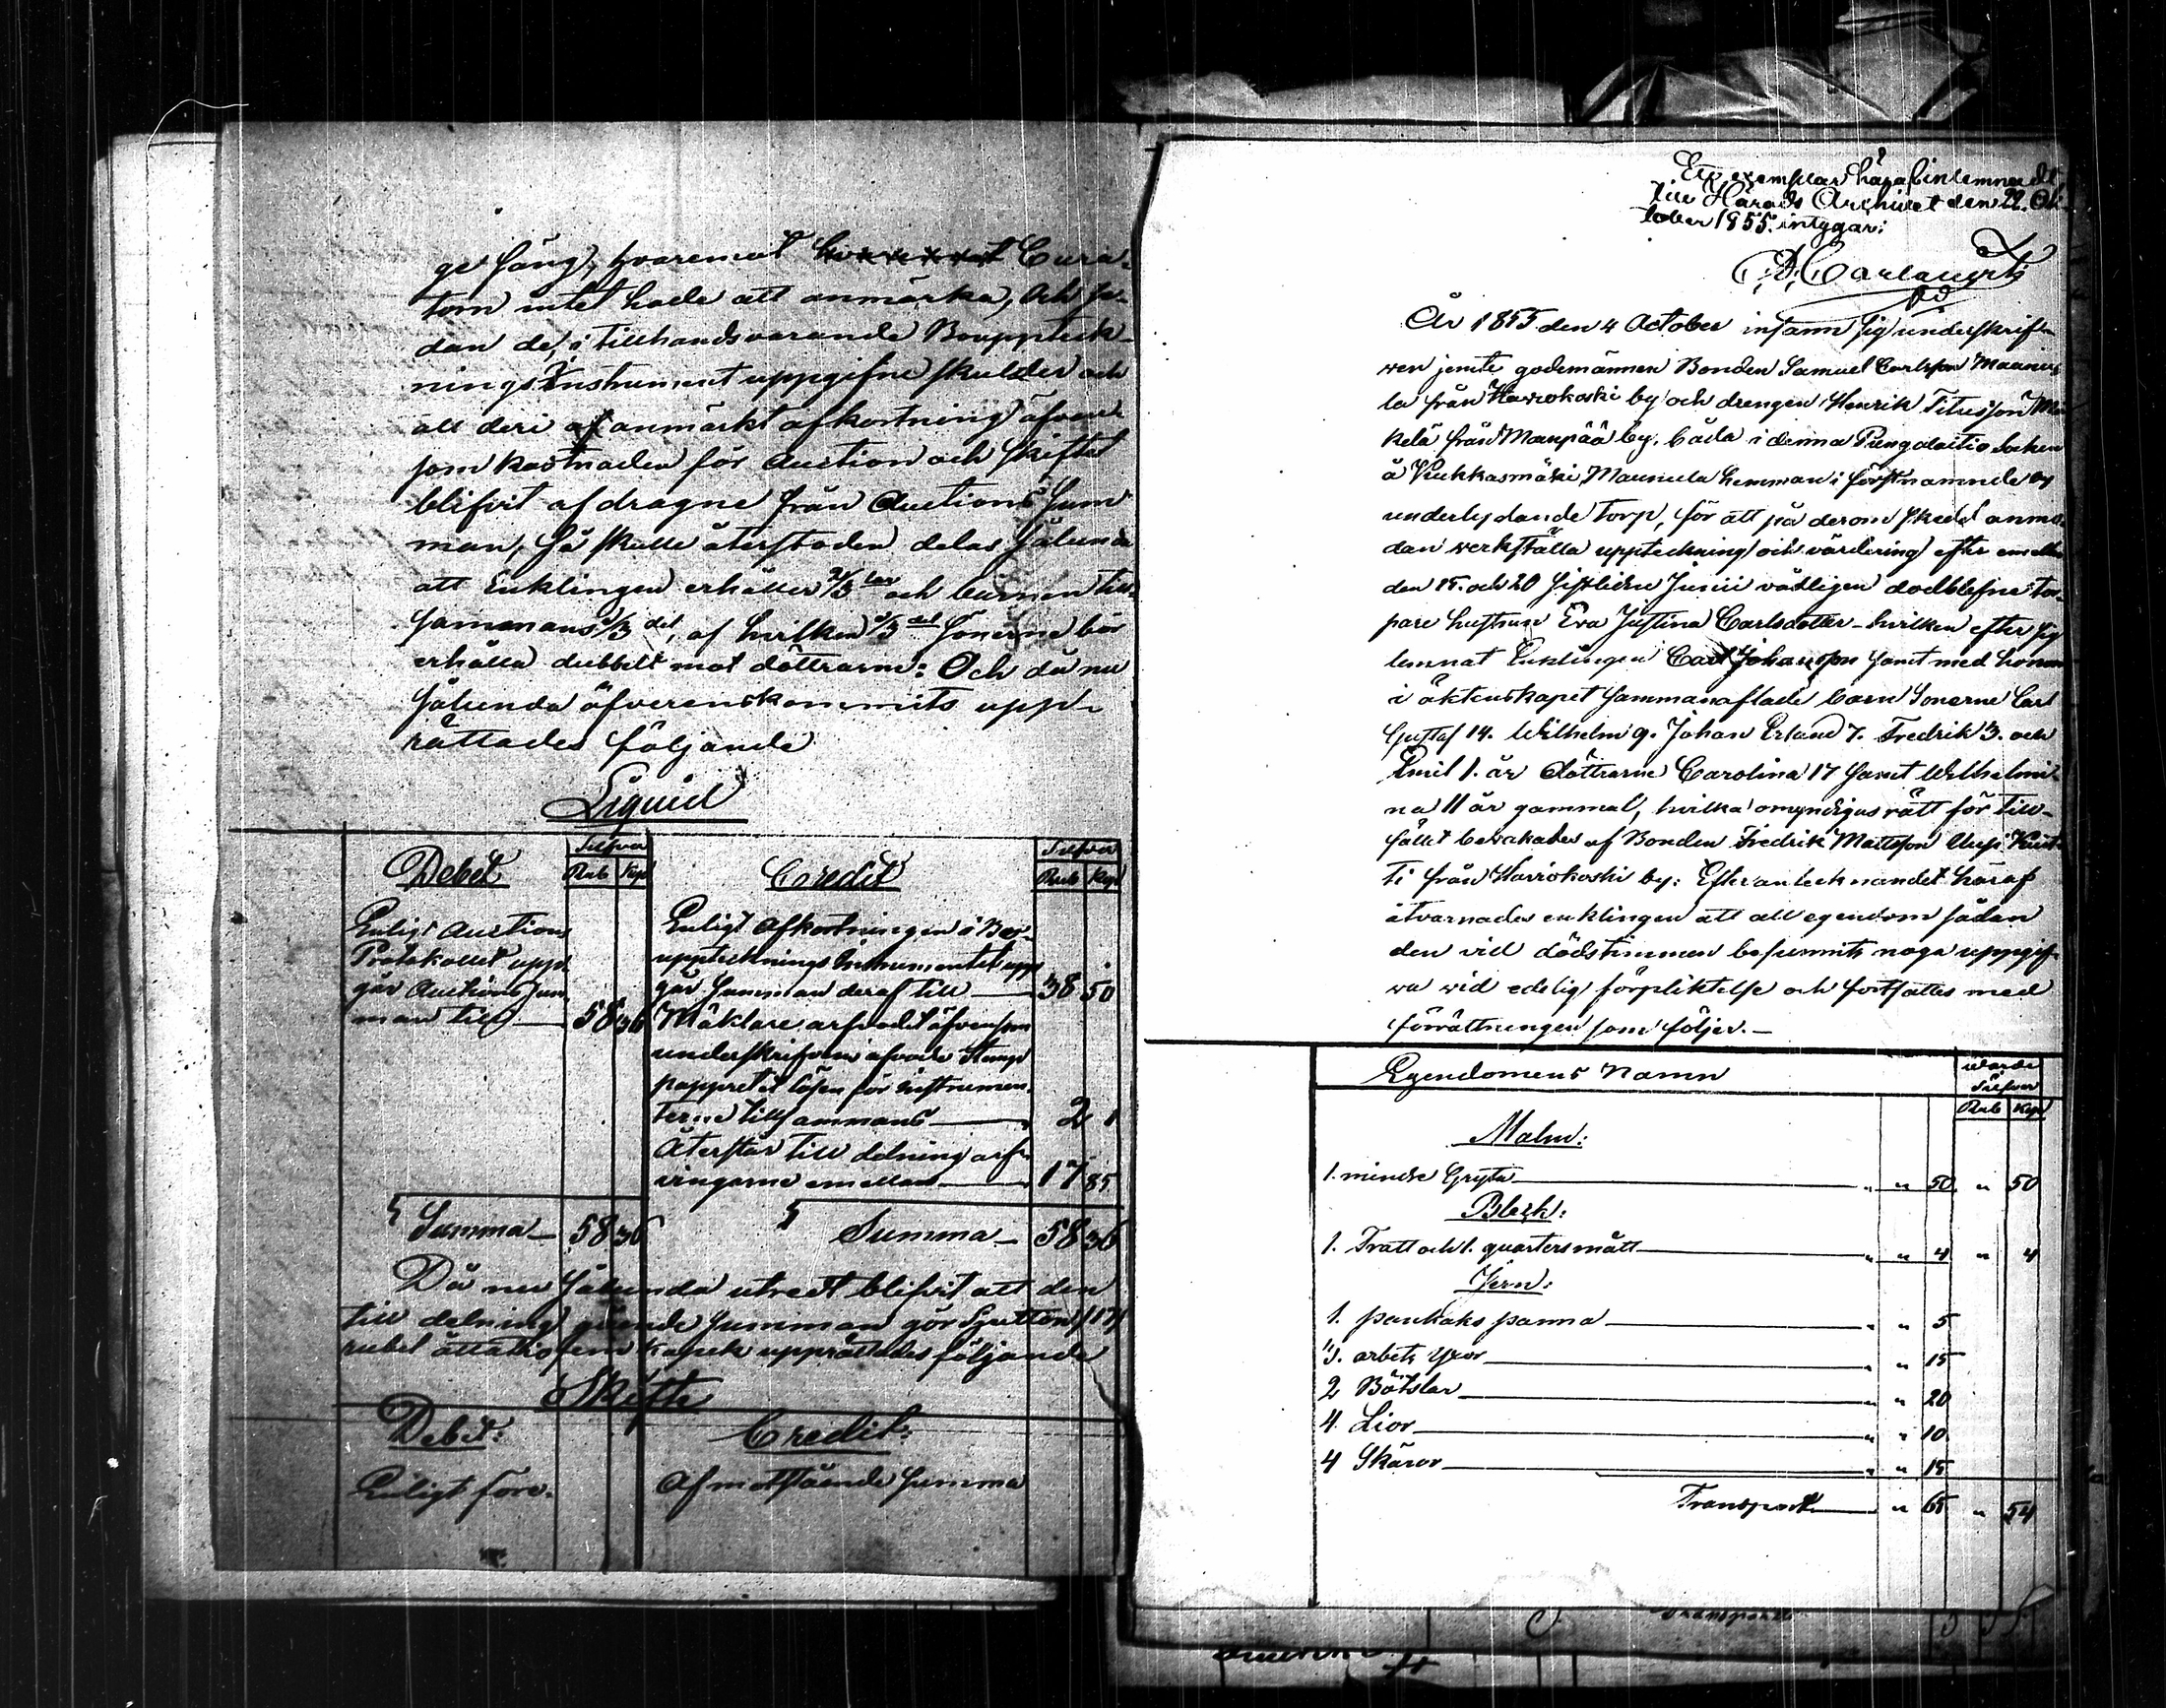 ge fång, hvaremot Cura-
torn intet hade att anmärka, Och se-
dan de, i tillhandsvarande Bouppteck-
nings Instrument uppgifne skulder och
all deri af anmärkt afkortning äfven-
som kostnaden för Auction och skiftet
blifvit afdragne från Auctions Sum
man, så skulle återstoden delas sålunda
att Enklingen erhåller 2/3 lar och barnen till-
sammans 1/3 del, af hvilken 1/3 del Sönerne bör
erhålla dubbelt mot döttrarne: Och då nu
sålunda öfverenskommits upp-
rättades följande
Liquid
Debet
Silfver
Rub Kop
Credit
Silfver
Rub Kop
Enligt Auctions
Protokollet upp-
går Auctions Sum
man till 58 36
Enligt Afkortningen i Bo-
upptecknings Instrumentet upp
går Summan deraf till 38 50
Mäklare arfvodet äfvensom
underskrifven arfvode Stemp
pappret it lösen för instrumen
terne tillsammans 2 1
Återstår till delning arf-
vingarne emellan 17 85
Summa 58 36
Summa 58 36
Då nu sålunda utredt blifvit att den
till delning gående summan gör Sjutton /17/
rubel åttatio fem kopek upprättades följande
Skifte
Debet:
Credit:
Enligt före-
Af motstående Summa
Ett exemplar häraf inlemnadt
till Härads Archivet den 22. Ok-
tober 1855. intygar:
År 1855 den 4 October infann sig underskrif-
ven jemte godemännen Bonden Samuel Carlsson Maanu
la från Harrokoski by och drengen Henrik Titusson Mä
kelä från Manpää by, båda i denna Pungalaitio Socken
å Kukkasmäki Maunula hemman i förstnämnde by
underlydande torp, för att på derom skedd anmo-
dan verkställa uppteckning och värdering efter emellan
den 15. och 20 sistlidne Junii vådligen dödblefne tor-
pare hustrun Eva Justina Carlsdotter hvilken efter sig
lemnat Enklingen Carl Johansson samt med honom
i äktenskapet sammanaflade barn Sönerne Carl
Gustaf 14. Wilhelm 9. Johan Erland 7. Fredrik 3. och
Emil 1. år döttrarne Carolina 17 samt Wilhelmi-
na 11 år gammal, hvilka omyndigas rätt för till-
fället bevakades af Bonden Fredrik Mattsson
ti från Harrokoski by: Efter antecknandet häraf
åtvarnades enklingen att all egendom sådan
den vid dödstimmen befunnits noga uppgif-
va vid edelig förpliktelse och fortsattes med
förrättningen som följer.
Egendomens Namn
Värde
Silfver
Rub Kop
Malm:
1. mindre Gryta " " 50 " 50
Bleck:
1. Tratt och 1. quartersmått " " 4 " 4
Jern:
1. pankaks panna " " 5
3. arbets yxor " " 15
2 Båtslar " " 20
4. Lior " " 10
4 Skäror " " 15
Transport " 65 " 54